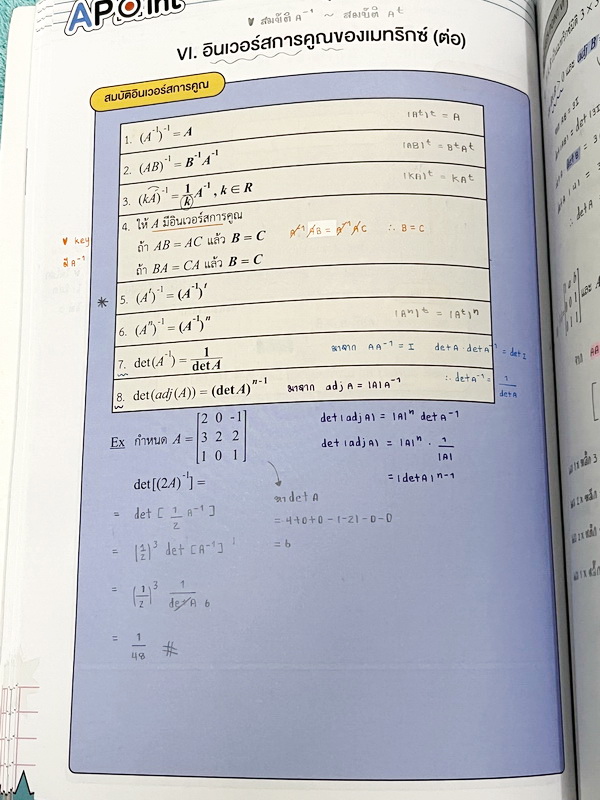 APOint
♥ สมบัติ A⁻¹ ~ สมบัติ Aᵗ
VI. อินเวอร์สการคูณของเมทริกซ์ (ต่อ)
สมบัติอินเวอร์สการคูณ
1. (A⁻¹)⁻¹ = A (Aᵗ)ᵗ = A
2. (AB)⁻¹ = B⁻¹A⁻¹ (AB)ᵗ = BᵗAᵗ
3. (kA)⁻¹ = 1/k A⁻¹ , k ∈ R (KA)ᵗ = KAᵗ
4. ให้ A มีอินเวอร์สการคูณ
ถ้า AB = AC แล้ว B = C A⁻¹AB = A⁻¹AC ∴ B = C
♥ key
มี A⁻¹
ถ้า BA = CA แล้ว B = C
* 5. (Aᵗ)⁻¹ = (A⁻¹)ᵗ
6. (Aⁿ)⁻¹ = (A⁻¹)ⁿ (Aⁿ)ᵗ = (Aᵗ)ⁿ
7. det(A⁻¹) = 1/det A มาจาก AA⁻¹ = I det A · det A⁻¹ = det I
8. det(adj(A)) = (det A)ⁿ⁻¹ มาจาก adj A = |A|A⁻¹ ∴ det A⁻¹ = 1/det A
Ex กำหนด A = [2 0 -1
3 2 2
1 0 1]
det(adj A) = |A|ⁿ det A⁻¹
det(adj A) = |A|ⁿ · 1/|A|
= (det A)ⁿ⁻¹
det[(2A)⁻¹] =
= det [ 1/2 A⁻¹ ]
= (1/2)³ det [A⁻¹]
= (1/2)³ 1/det A 6
= 1/48 #
หา det A
= 4+0+0-(-2)-0-0
= 6